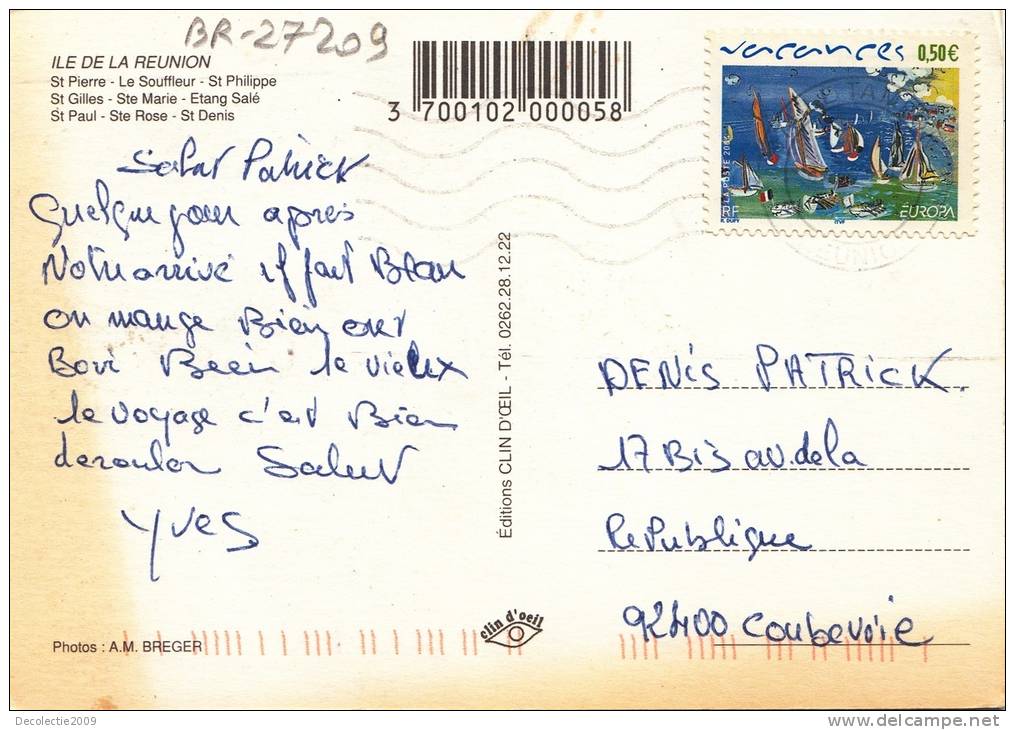 BR-27209
ILE DE LA REUNION
St Pierre - Le Souffleur - St Philippe
St Gilles - Ste Marie - Etang Salé
St Paul - Ste Rose - St Denis
3 700102 000058
vacances 0,50€
LA POSTE 2004
RF
R. DUFY
EUROPA
Salut Patrick
Quelque jour après
Notre arrivé il fait Beau
on mange Bien ont
Boui Bien le vieux
le voyage c'est Bien
derouler Salut
Yves
Éditions CLIN D'ŒIL - Tél. 0262.28.12.22
DENIS PATRICK.
17 Bis av. de la
Republique
92400 Courbevoie
clin d'oeil
Photos : A.M. BREGER
Decolectie2009
www.delcampe.net